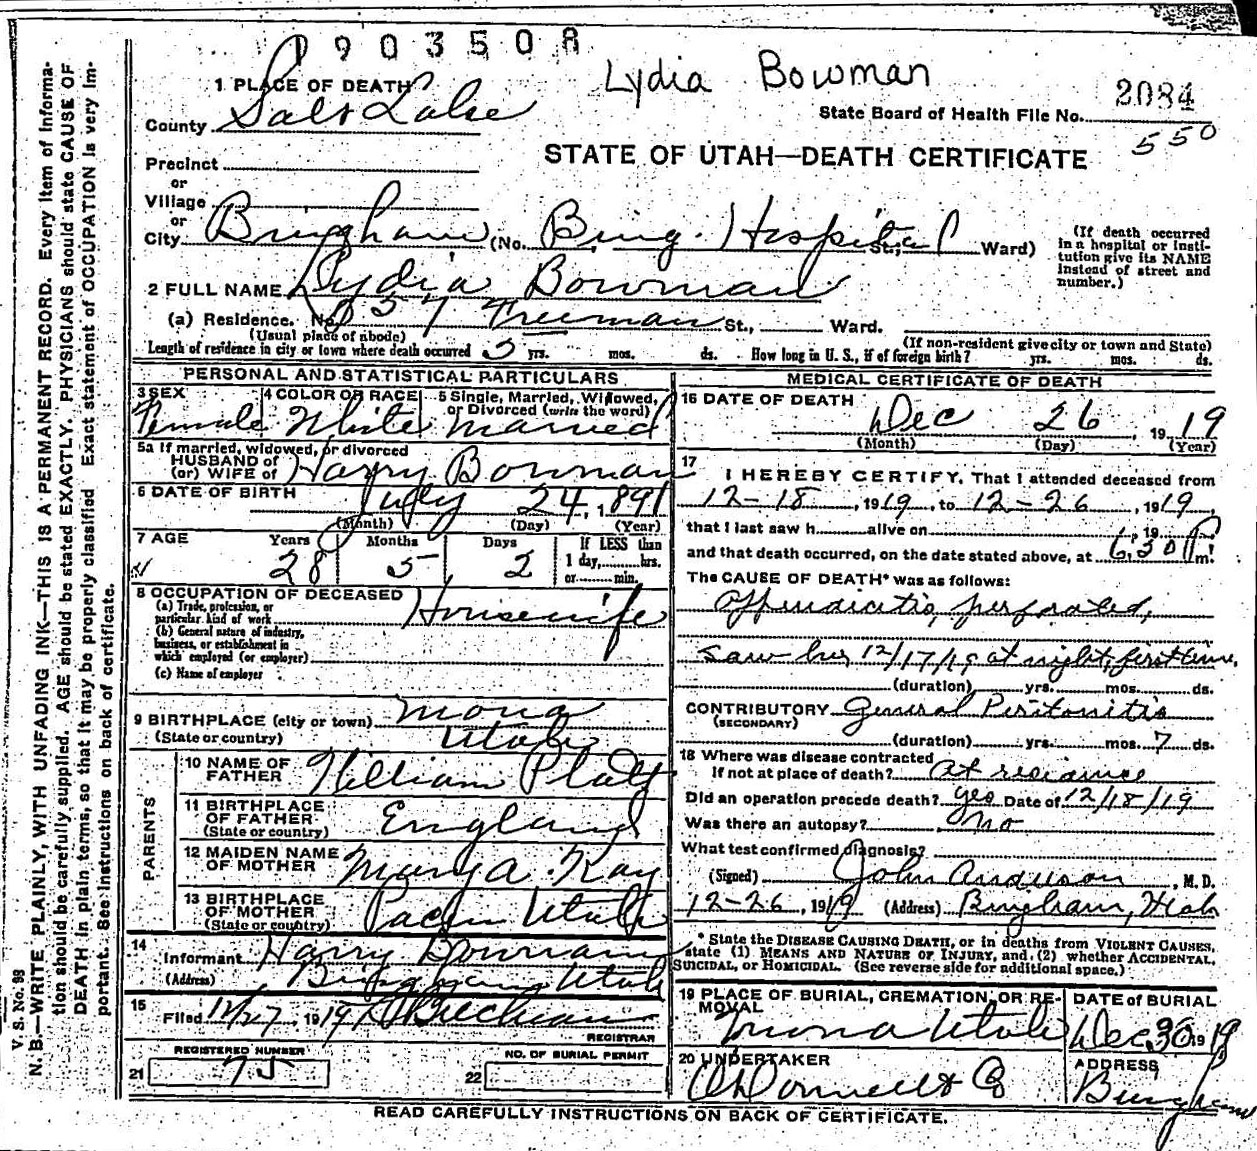 1903508
Lydia Bowman
1 PLACE OF DEATH
2084
County Salt Lake
State Board of Health File No.
550
STATE OF UTAH—DEATH CERTIFICATE
Precinct
or
Village
or
City Bingham (No. Bing. Hospital St.; Ward)
(If death occurred in a hospital or institution give its NAME instead of street and number.)
2 FULL NAME Lydia Bowman
(a) Residence. No. 837 Freeman St., Ward.
(Usual place of abode) (If non-resident give city or town and State)
Length of residence in city or town where death occurred 5 yrs. mos. ds. How long in U. S., if of foreign birth? yrs. mos. ds.
PERSONAL AND STATISTICAL PARTICULARS
3 SEX 4 COLOR OR RACE 5 Single, Married, Widowed, or Divorced (write the word)
Female White Married
5a If married, widowed, or divorced
HUSBAND of
(or) WIFE of Harry Bowman
6 DATE OF BIRTH July 24, 1891
(Month) (Day) (Year)
7 AGE Years Months Days If LESS than
28 5 2 1 day, hrs.
or min.
8 OCCUPATION OF DECEASED
(a) Trade, profession, or
particular kind of work Housewife
(b) General nature of industry,
business, or establishment in
which employed (or employer)
(c) Name of employer
9 BIRTHPLACE (city or town) Mona
(State or country) Utah
PARENTS
10 NAME OF FATHER William Platt
11 BIRTHPLACE OF FATHER England
(State or country)
12 MAIDEN NAME OF MOTHER Mary A. Kay
13 BIRTHPLACE OF MOTHER Utah
(State or country)
14
Informant Harry Bowman
(Address) Bingham Utah
15
Filed 12/27, 1919
REGISTRAR
REGISTERED NUMBER NO. OF BURIAL PERMIT
21 75 22
MEDICAL CERTIFICATE OF DEATH
16 DATE OF DEATH Dec 26, 1919
(Month) (Day) (Year)
17
I HEREBY CERTIFY, That I attended deceased from
12-18, 1919, to 12-26, 1919,
that I last saw h alive on , 19
and that death occurred, on the date stated above, at 6,30 P m.
The CAUSE OF DEATH* was as follows:
Appendicitis, perforated,
saw her 12/17/19 at night, first time.
(duration) yrs. mos. ds.
CONTRIBUTORY General Peritonitis
(SECONDARY)
(duration) yrs. mos. 7 ds.
18 Where was disease contracted
If not at place of death? at residence
Did an operation precede death? yes Date of 12/18/19
Was there an autopsy? no
What test confirmed diagnosis?
(Signed) John Anderson, M. D.
12-26, 1919 (Address) Bingham, Utah
* State the DISEASE CAUSING DEATH, or in deaths from VIOLENT CAUSES,
state (1) MEANS AND NATURE OF INJURY, and (2) whether ACCIDENTAL,
SUICIDAL, or HOMICIDAL. (See reverse side for additional space.)
19 PLACE OF BURIAL, CREMATION, OR REMOVAL DATE of BURIAL
Mona Utah Dec. 30 1919
20 UNDERTAKER ADDRESS
O'Donnell & Co Bingham
READ CAREFULLY INSTRUCTIONS ON BACK OF CERTIFICATE.
V. S. No. 98
N. B.—WRITE PLAINLY, WITH UNFADING INK—THIS IS A PERMANENT RECORD. Every item of informa-
tion should be carefully supplied. AGE should be stated EXACTLY. PHYSICIANS should state CAUSE OF
DEATH in plain terms, so that it may be properly classified. Exact statement of OCCUPATION is very im-
portant. See instructions on back of certificate.